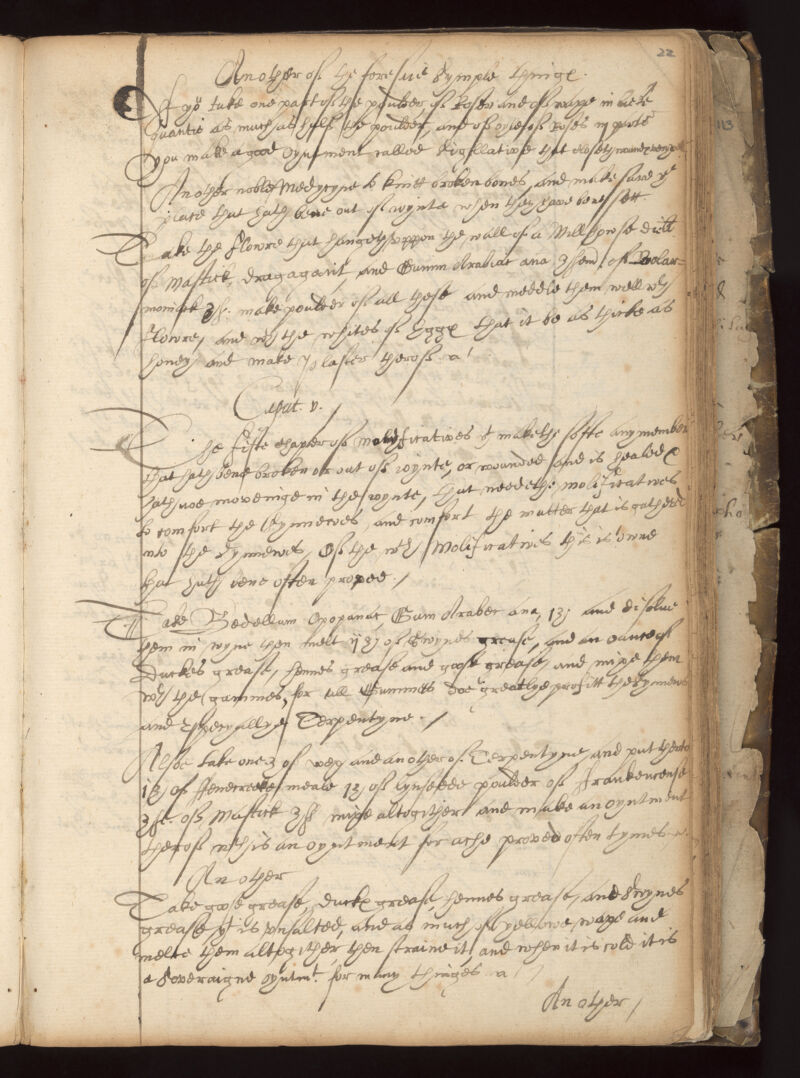 22
Another of the foresaid symple thinges
If yo take one part of the poulder of Roses and of waxe in like
quantitie as much as half the poulder, and of oyle of Roses in
you make a good oyntment called Sigillative that closeth
Another noble Medycyne to knitt broken bones, and make save ye
place that hath bene out of ioynte when they have bene sett.
Take the flowre that hangeth uppon the wall of a Millhowse
of Mastick, dragagant, and Gumm Arabac ana ℥ sem of Bolar-
moniack ℥ . make poulder of all these and meddle them well wth
flowre, and wth the whites of Egges that it be as thicke as
honey and make plaster therof.
Caput. v.
The fifte chapter of Molificatives yt maketh softe any member
that hath bene broken or out of ioynte, or wounded and is healed &
hath noe moveinge in the ioynte, that needethe Molificatives
to comfort the Synnewes, and comfort the matter that is gathered
into the Synnewes, Of the wch Molificatives this is owne
that hath bene often proved.
Take Bedellum Opopanac, Gum Araber ana, and disolue
them in wyne then melt of Swynes grease, and an ounce of
Duckes grease, hennes grease and goose grease, and mixe them
wth the gammes, for all Gummes doe greatlye profitt the synnews
and Especyallye Terpentyne.
Alsoe take one ℥ of wex and another of Terpentyne and put therto
of Fenecreeke meale of lynseede poulder of Frankencense
℥ of Mastick ℥ mixe altogither and make an oyntment
therof wch is an oyntment for ache proved often tymes
Another
Take goose grease, duck grease, hennes grease, and Swynes
grease yt is vnsalted, and as much of yellowe waxe and
melte them altogither then straine it and when it is cold it is
a soveraigne oyntmt. for many thinges.
Another